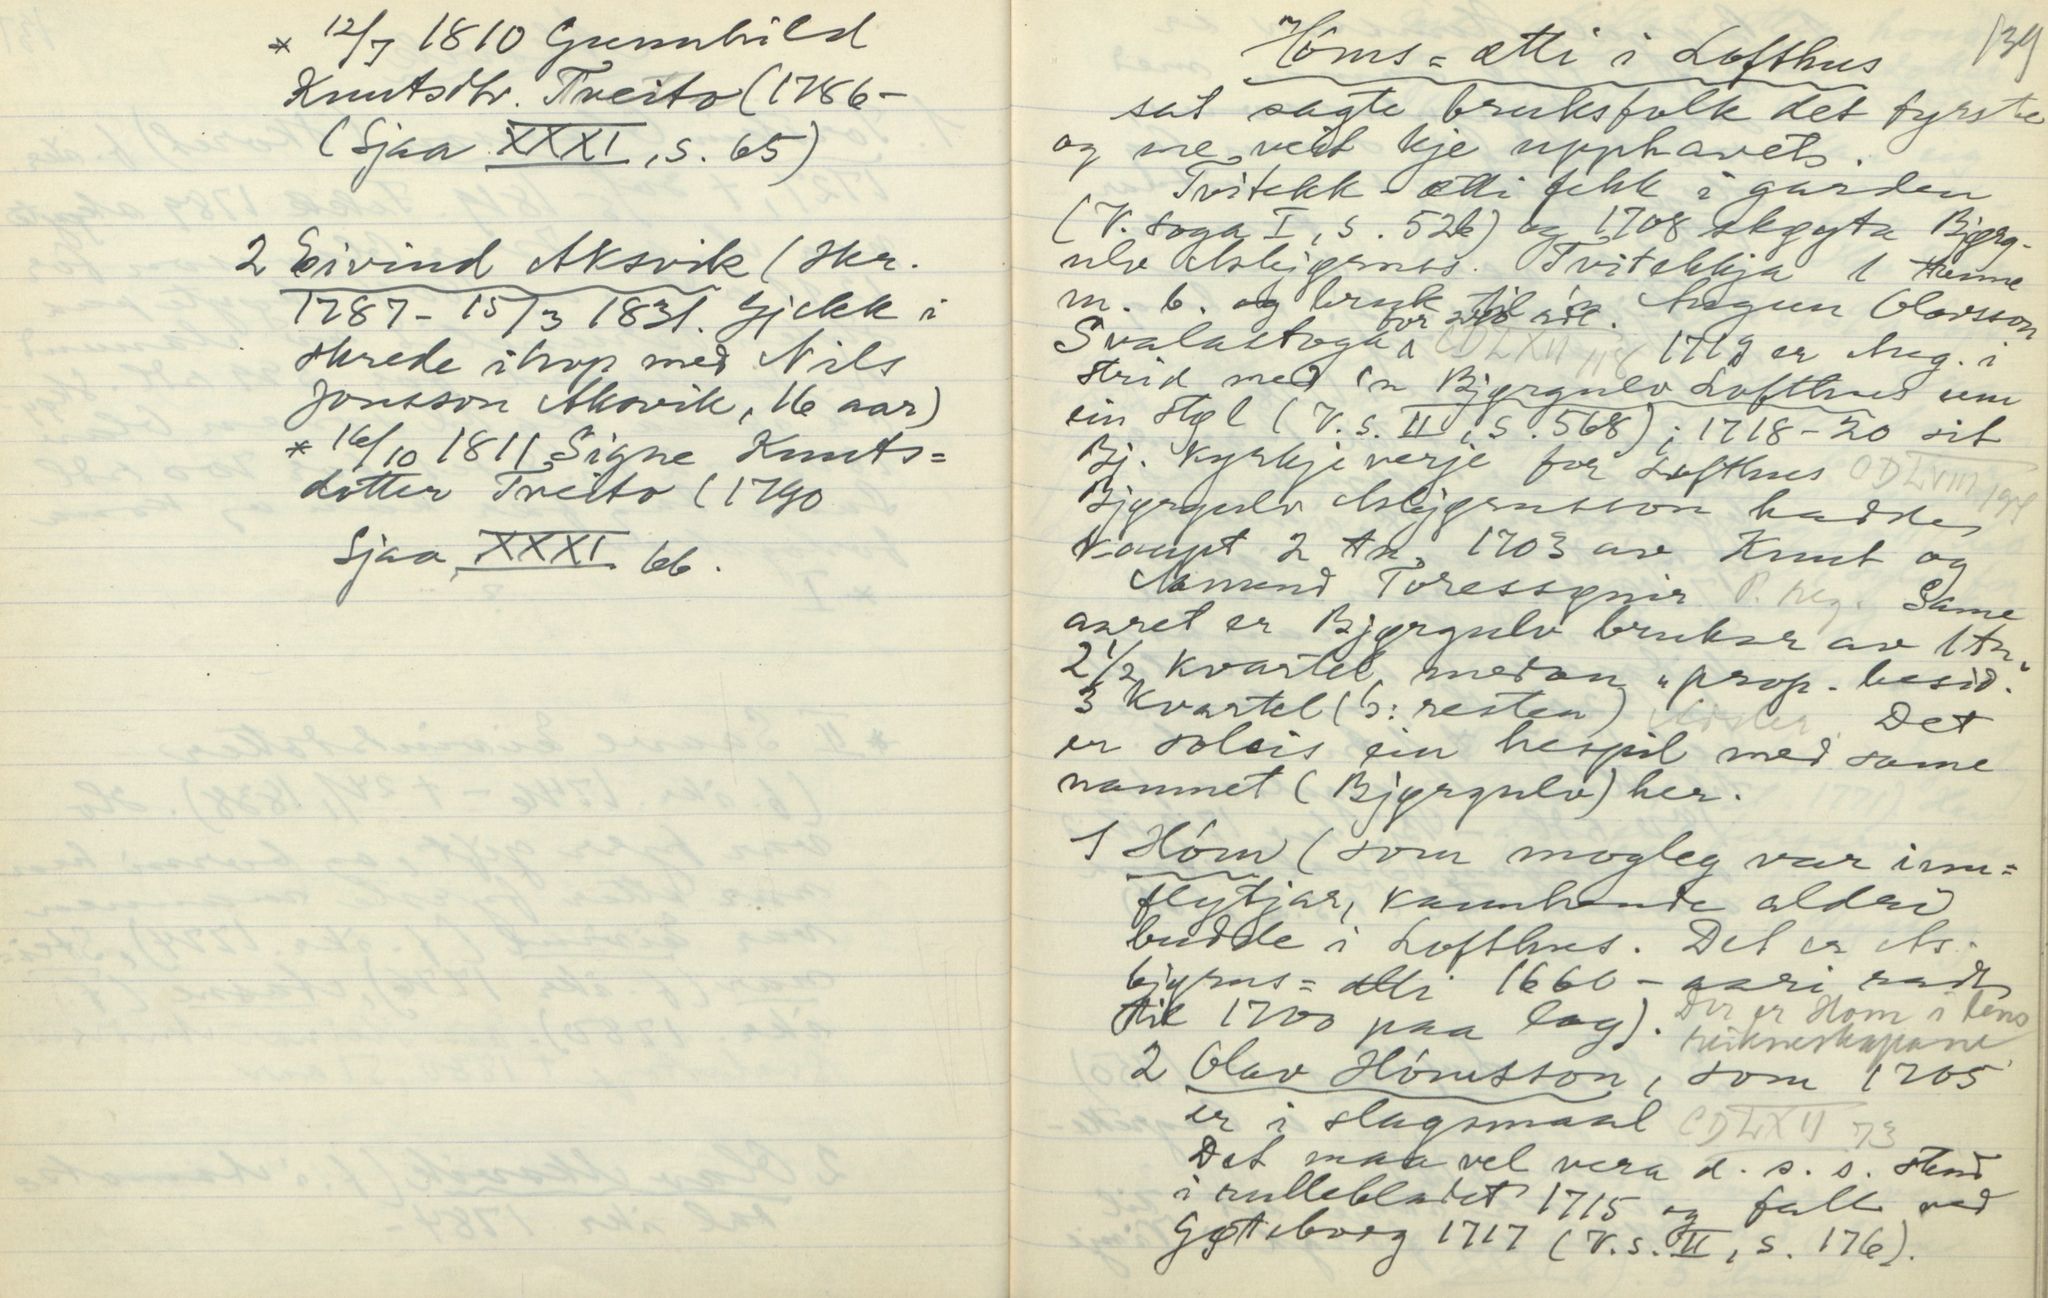 * 12/7 1810 Gunnhild
Knutsdtr. Treito (1786-
(Sjaa XXXI, s. 65)
2 Eivind Aksvik (skr.
1787- 15/3 1831. Gjekk i
skrede ihop med Nils
Jonsson Aksvik, 16 aar)
* 16/10 1811 Signe Knuts=
dotter Treito (1790
Sjaa XXXI 66.
139
Hóms=ætti i Lofthus
sat sagte bruksfolk det fyrste
og me veit kje upphavets.
Tvitekk-ætti fekk i garden
(V. soga I, s. 526) og 1708 skøyta Bjørg-
ulv Asbjørnss. Tvitekkja 1 tunne
m. b. og bruk til Augun Olavsson
Svalastoga, CDLXII 118 1719 er Aug. i
strid med 'n Bjørgulv Lofthus um
ein støl (V. s. II, s. 568); 1718-20 sit
Bj. kyrkjeverje for Lofthus CDLVIII
Bjørgulv Asbjørnsson hadde
kaupt 2 tn. 1703 av Knut og
Aamund Toressynir P. reg. Same
aaret er Bjørgulv brukar av 1 tn.
2 1/2 kvartel, medan "prop. besid."
3 kvartel (ɔ: resten) Det
er soleis ein hespil med same
namnet (Bjørgulv) her.
1 Hóm (som mogleg var inn=
flytjar, kannhende aldri
budde i Lofthus. Det er As-
bjørns=ætti 1660-aari radt
til 1700 paa lag). Der er Hom i lens
rekneskapane
2 Olav Hómsson, som 1705
er i slagsmaal CDLXII 73
Det maa vel vera d. s. s. stend
i rullebladet 1715 og fall ved
Gøteborg 1717 (V. s. II, s. 176).